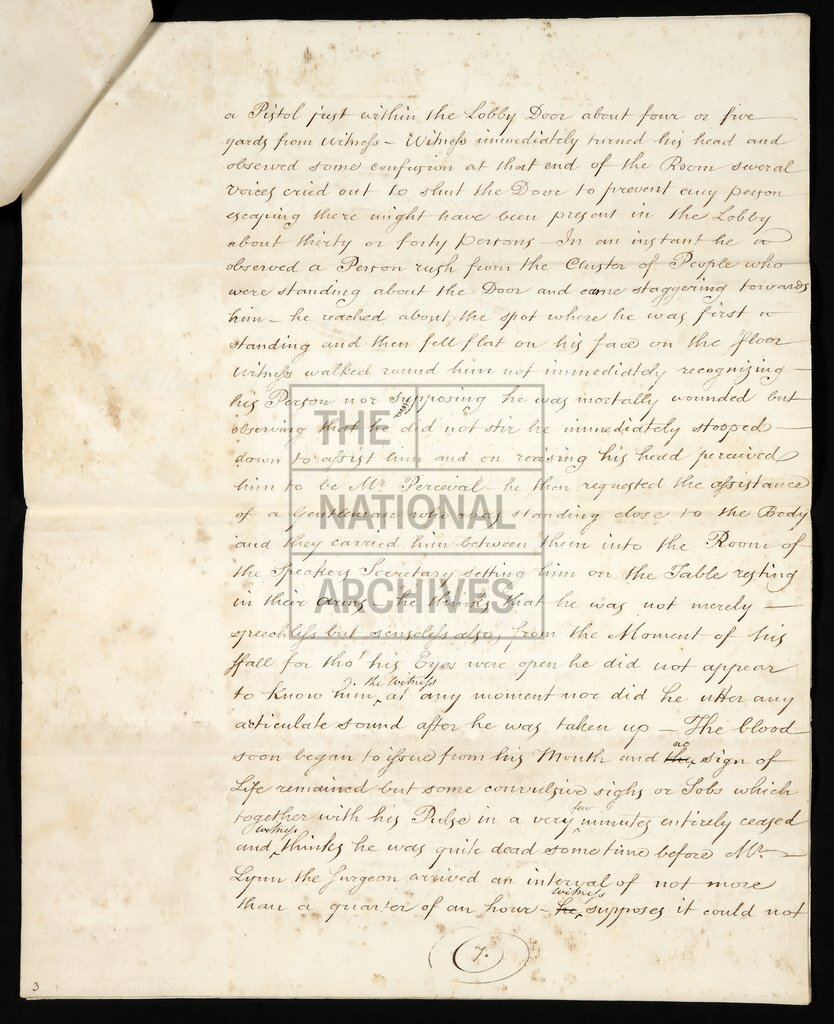 a Pistol just within the Lobby Door about four or five
yards from Witness – Witness immediately turned his head and
observed some confusion at that end of the Room several
Voices cried out to shut the Door to prevent any person
escaping there might have been present in the Lobby
about thirty or forty Persons – In an instant he
observed a Person rush from the Cluster of People who
were standing about the Door and came staggering towards
him – he reached about the spot where he was first
standing and then fell flat on his face on the floor
Witness walked round him not immediately recognizing –
his Person nor supposing he was mortally wounded but
observing that he did not stir he immediately stooped –
down to assist him and on raising his head perceived
him to be Mr Perceval – he then requested the assistance
of a Gentleman who was standing close to the Body
and they carried him between them into the Room of
the Speakers Secretary setting him on the Table resting
in their arms – he thinks that he was not merely –
speechless but senseless also, from the Moment of his
ffall for tho' his Eyes were open he did not appear
to know him, the Witness at any moment nor did he utter any
articulate sound after he was taken up – The blood
soon began to issue from his Mouth and the no sign of
Life remained but some convulsive sighs or Sobs which
together with his Pulse in a very few minutes entirely ceased
and Witness thinks he was quite dead some time before Mr. –
Lynn the Surgeon arrived an interval of not more
than a quarter of an hour – he Witness supposes it could not
7.
3
THE
NATIONAL
ARCHIVES